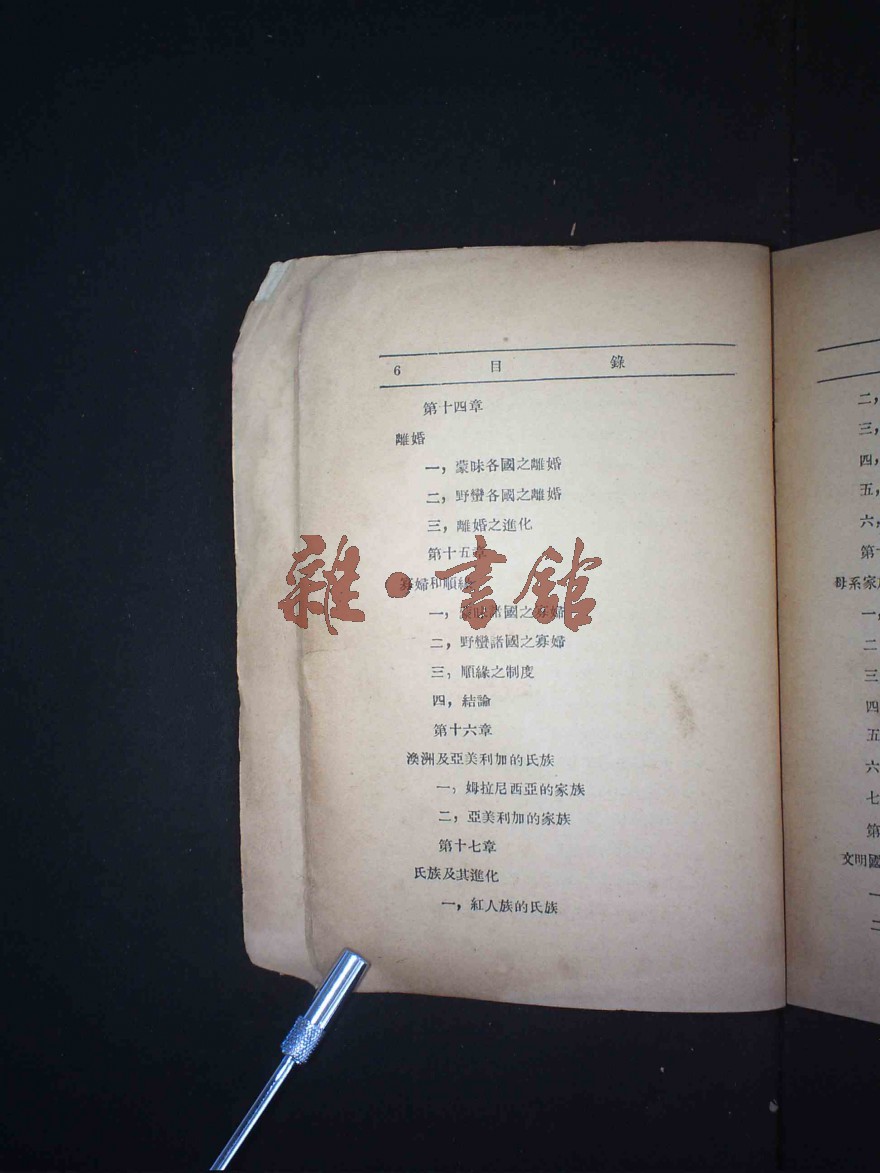 6 目 錄
第十四章
離婚
一，蒙昧各國之離婚
二，野蠻各國之離婚
三，離婚之進化
第十五章
寡婦和順緣
一，蒙昧諸國之寡婦
二，野蠻諸國之寡婦
三，順緣之制度
四，結論
第十六章
澳洲及亞美利加的氏族
一，姆拉尼西亞的家族
二，亞美利加的家族
第十七章
氏族及其進化
一，紅人族的氏族
雜·書館
二，
三，
四，
五，
六，
第十
母系家族
一，
二
三
四
五
六
七
第
文明國
一
二